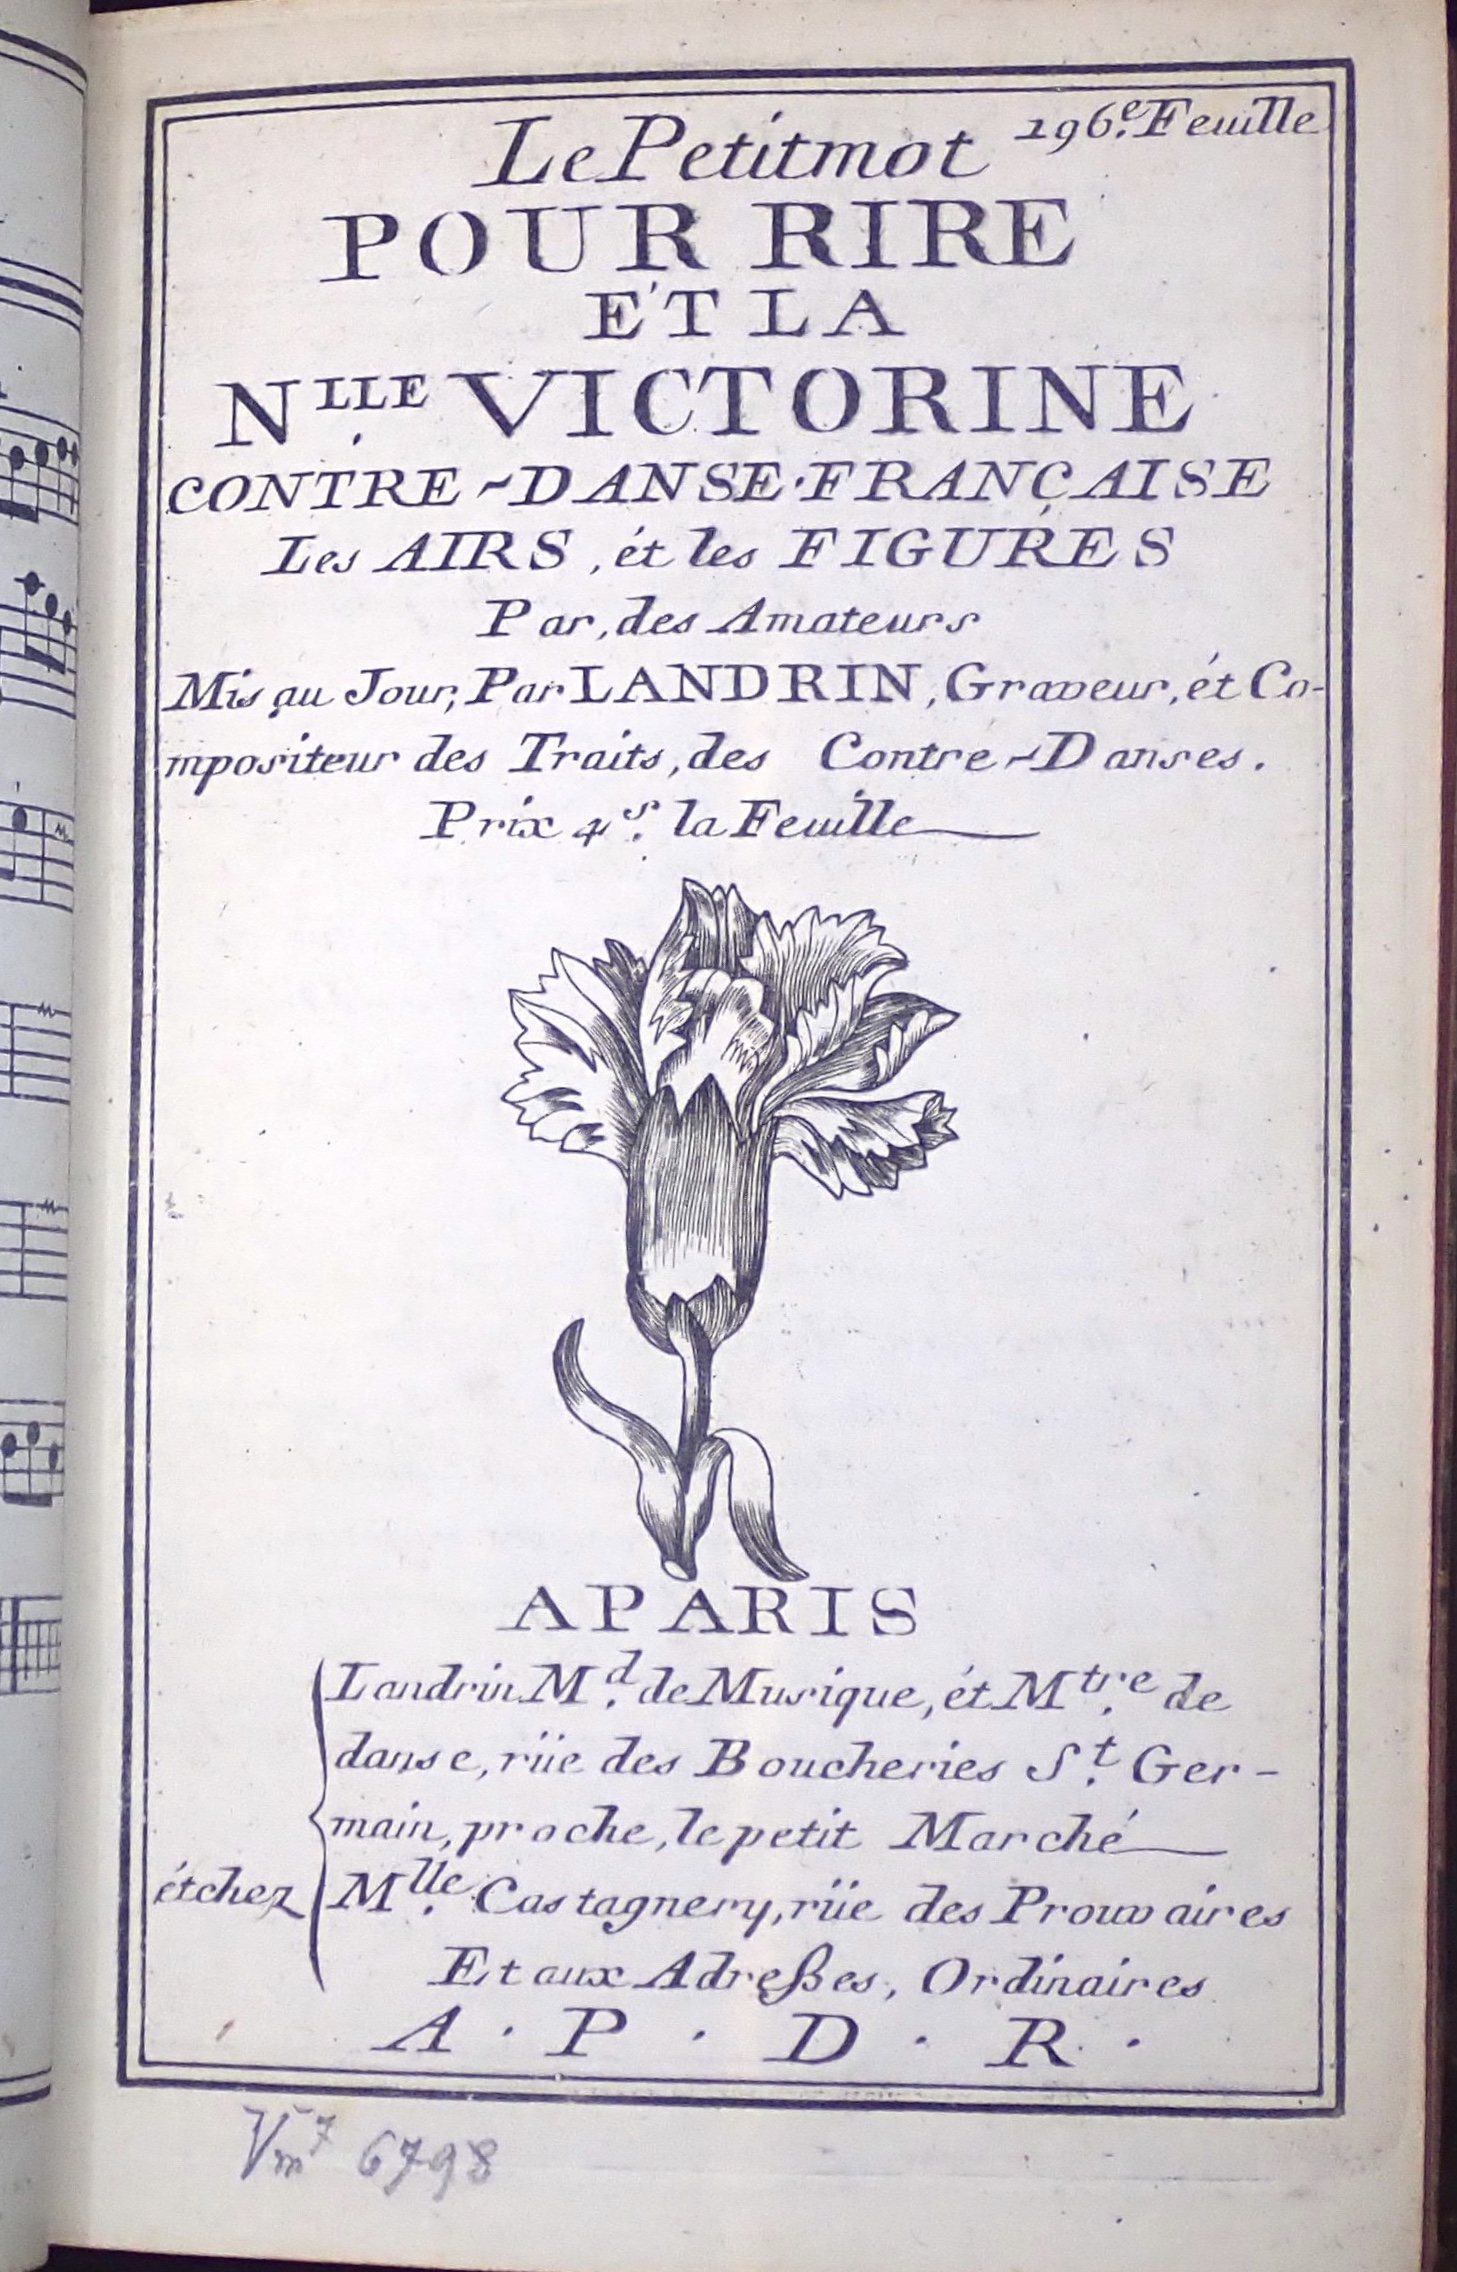 196.e Feuille
Le Petitmot
POUR RIRE
ÉT LA
N.LLE VICTORINE
CONTRE-DANSE·FRANÇAISE
Les AIRS, ét les FIGURES
Par, des Amateurs
Mis au Jour, Par LANDRIN, Graveur, ét Co-
mpositeur des Traits, des Contre-Danses.
Prix 4.s la Feuille
A PARIS
Landrin M.d de Musique, ét M.tre de
danse, rüe des Boucheries S.t Ger-
main, proche, le petit Marché
ét chez M.lle Castagnery, rüe des Prouvaires
Et aux Adreßes, Ordinaires
A · P · D · R ·
Vm7 6798